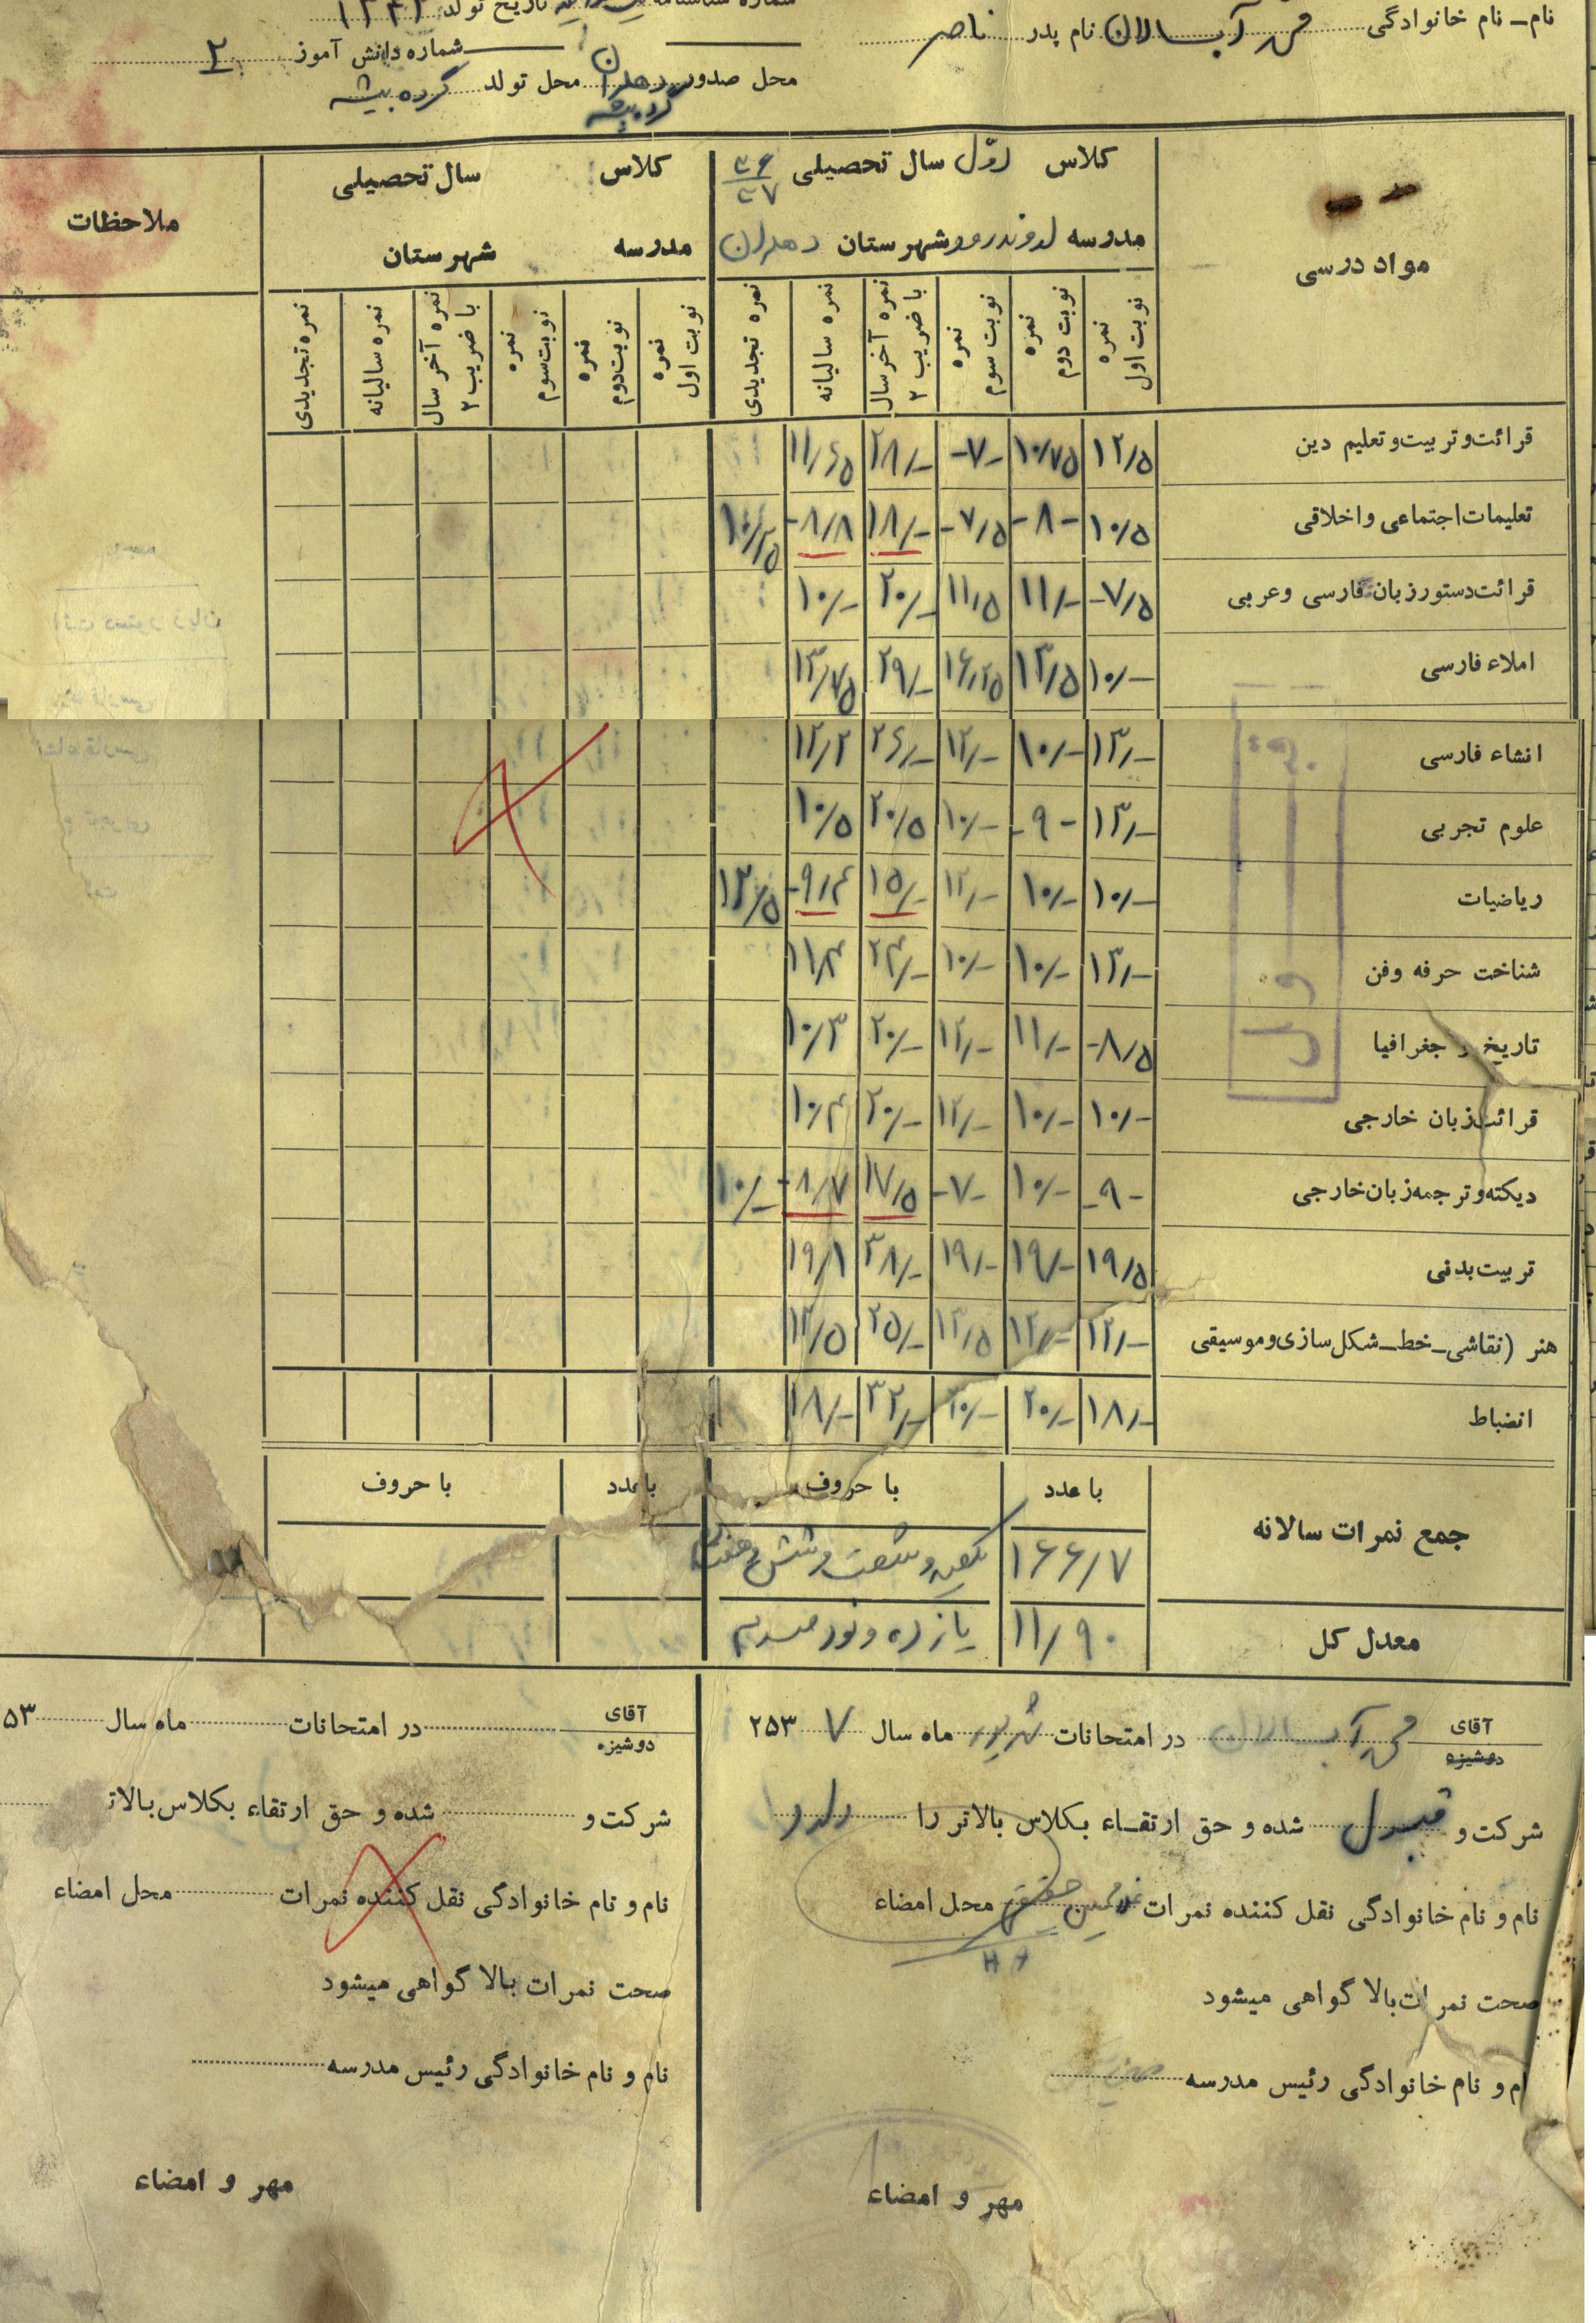 تاریخ تولد: ۱۳۴۳
نام ـ نام خانوادگی آبسالان نام پدر ناصر
شماره دانش آموز ۲
محل صدور دهلران محل تولد گرده بیشه
گرده بیشه
مواد درسی
کلاس اوّل سال تحصیلی ۳۶/۳۷
مدرسه شهرستان دهلران
کلاس سال تحصیلی
مدرسه شهرستان
ملاحظات
نمره نوبت اول
نمره نوبت دوم
نمره نوبت سوم
نمره آخر سال با ضریب ۲
نمره سالیانه
نمره تجدیدی
نمره نوبت اول
نمره نوبت دوم
نمره نوبت سوم
نمره آخر سال با ضریب ۲
نمره سالیانه
نمره تجدیدی
قرائت و تربیت و تعلیم دین ۱۲/۵ ۱۰/۷۵ -۷- ۲۸/- ۱۱/۶۵
تعلیمات اجتماعی و اخلاقی ۱۰/۵ -۸- -۷/۵ ۱۸/- -۸/۸ ۱۰/۲۵
قرائت دستور زبان فارسی و عربی -۷/۵ ۱۱/- ۱۱/۵ ۲۰/- ۱۰/-
املاء فارسی ۱۰/- ۱۳/۵ ۱۶/۲۵ ۲۹/- ۱۳/۷۵
انشاء فارسی ۱۳/- ۱۰/- ۱۲/- ۲۶/- ۱۲/۲
علوم تجربی ۱۳/- -۹- ۱۰/- ۲۰/۵ ۱۰/۵
ریاضیات ۱۰/- ۱۰/- ۱۲/- ۱۵/- -۹/۴ ۱۲/۵
شناخت حرفه و فن ۱۳/- ۱۰/- ۱۰/- ۲۴/- ۱۱/۴
تاریخ و جغرافیا -۸/۵ ۱۱/- ۱۲/- ۲۰/- ۱۰/۳
قرائت زبان خارجی ۱۰/- ۱۰/- ۱۲/- ۲۰/- ۱۰/۴
دیکته و ترجمه زبان خارجی -۹- ۱۰/- -۷- ۱۷/۵ -۸/۷ ۱۰/-
تربیت بدنی ۱۹/۵ ۱۹/- ۱۹/- ۳۸/- ۱۹/۱
هنر (نقاشی ـ خط ـ شکل سازی و موسیقی ۱۲/- ۱۲/- ۱۳/۵ ۲۵/- ۱۲/۵
انضباط ۱۸/- ۲۰/- ۲۰/- ۳۲/- ۱۸/-
قبول
جمع نمرات سالانه
با عدد با حروف با عدد با حروف
۱۶۶/۷ یکصد و شصت و شش و هفت دهم
معدل کل ۱۱/۹۰ یازده و نود صدم
آقای دوشیزه آبسالان در امتحانات شهریور ماه سال ۲۵۳۷
شرکت و قبول شده و حق ارتقاء بکلاس بالاتر را دارد
نام و نام خانوادگی نقل کننده نمرات محل امضاء
صحت نمرات بالا گواهی میشود
نام و نام خانوادگی رئیس مدرسه
مهر و امضاء
آقای دوشیزه در امتحانات ماه سال ۵۳
شرکت و شده و حق ارتقاء بکلاس بالاتر
نام و نام خانوادگی نقل کننده نمرات محل امضاء
صحت نمرات بالا گواهی میشود
نام و نام خانوادگی رئیس مدرسه
مهر و امضاء